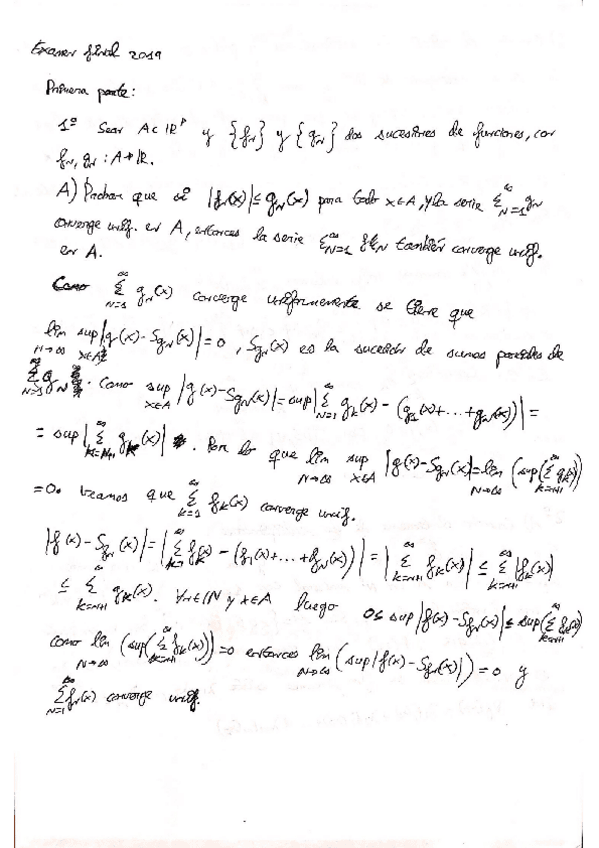 Examen final 2019
Primera parte:
1º Sean A⊂ℝᵖ y {fₙ} y {gₙ} dos sucesiones de funciones, con
fₙ, gₙ : A→ℝ.
A) Probar que si |fₙ(x)| ≤ gₙ(x) para todo x∈A, y la serie Σ_{n=1}^∞ gₙ
converge unif. en A, entonces la serie Σ_{n=1}^∞ fₙ también converge unif.
en A.
Como Σ_{n=1}^∞ gₙ(x) converge uniformemente se tiene que
lím_{n→∞} sup_{x∈A} |g(x) - Sgₙ(x)| = 0, Sgₙ(x) es la sucesión de sumas parciales de
Σ_{n=1}^∞ gₙ. Como sup_{x∈A} |g(x) - Sgₙ(x)| = sup |Σ_{n=1}^∞ gₖ(x) - (g₁(x)+...+gₙ(x))| =
= sup |Σ_{k=n+1}^∞ gₖ(x)|. Por lo que lím_{n→∞} sup_{x∈A} |g(x) - Sgₙ(x)| = lím_{n→∞} (sup(Σ_{k=n+1}^∞ gₖ))
= 0. Veamos que Σ_{k=1}^∞ fₖ(x) converge unif.
|f(x) - Sfₙ(x)| = |Σ_{k=1}^∞ fₖ(x) - (f₁(x)+...+fₙ(x))| = |Σ_{k=n+1}^∞ fₖ(x)| ≤ Σ_{k=n+1}^∞ |fₖ(x)|
≤ Σ_{k=n+1}^∞ gₖ(x). ∀n∈ℕ y x∈A luego 0 ≤ sup |f(x) - Sfₙ(x)| ≤ sup(Σ_{k=n+1}^∞ fₖ(x))
Como lím_{n→∞} (sup(Σ_{k=n+1}^∞ fₖ(x))) = 0 entonces lím_{n→∞} (sup |f(x) - Sfₙ(x)|) = 0 y
Σ_{n=1}^∞ fₙ(x) converge unif.